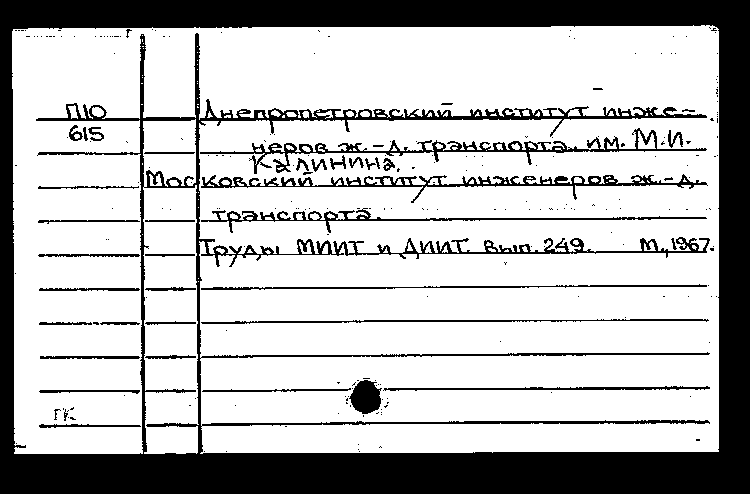 П10 Днепропетровский институт инже-
615 неров ж.-д. транспорта им. М.И.
Калинина.
Московский институт инженеров ж.-д.
транспорта.
Труды МИИТ и ДИИТ. Вып. 249. М., 1967.
ГК